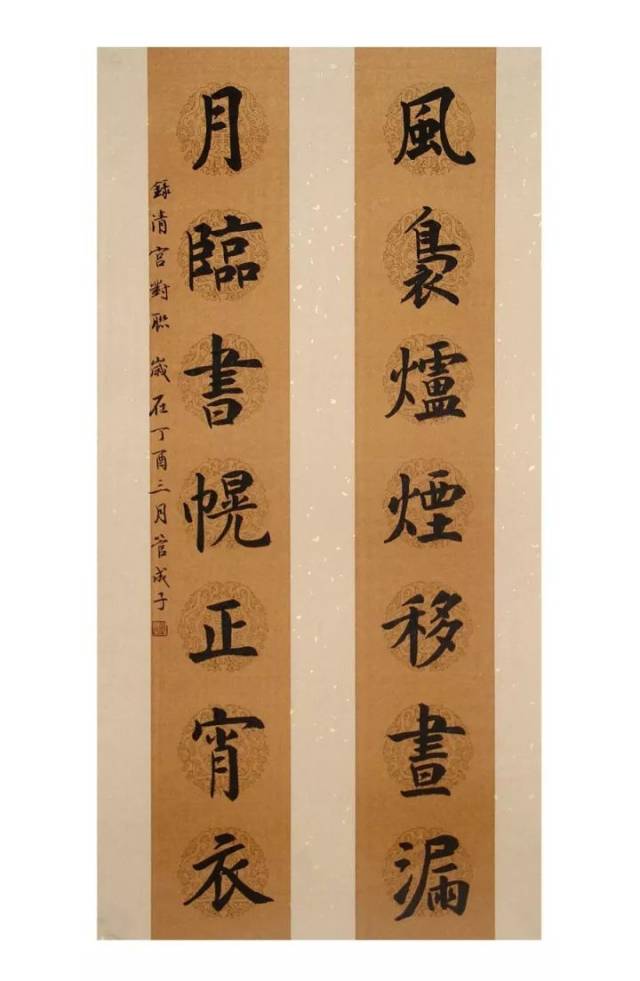 風裊爐煙移晝漏
月臨書幌正宵衣
錄清宮對聯 歲在丁酉三月管成子